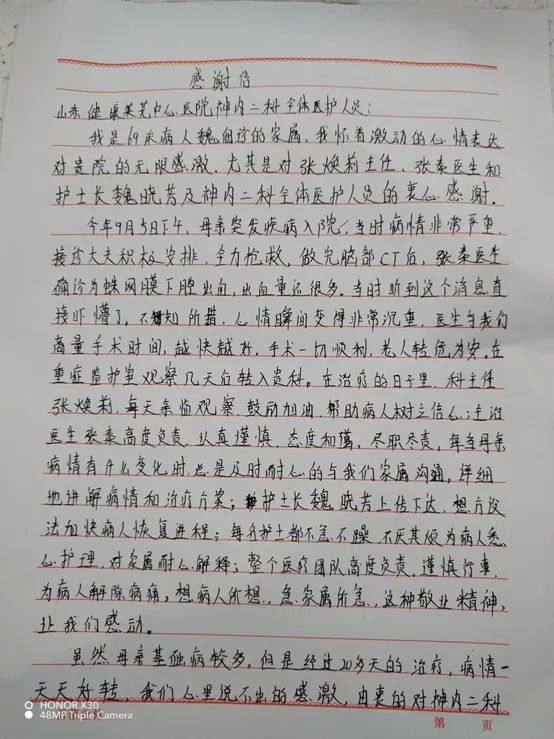 感谢信
山东健康莱芜中心医院神内二科全体医护人员:
我是69床病人魏 诊的家属,我怀着激动的心情表达
对贵院的无限感激,尤其是对张焕莉主任、张秦医生和
护士长魏晓芳及神内二科全体医护人员的衷心感谢。
今年9月5日下午,母亲突发疾病入院,当时病情非常严重,
接诊大夫积极安排,全力抢救,做完脑部CT后,张秦医生
确诊为蛛网膜下腔出血,出血量还很多。当时听到这个消息直
接吓懵了。不知所措,心情瞬间变得非常沉重,医生与我们
商量手术时间,越快越好,手术一切顺利,老人转危为安。在
重症监护室观察几天后转入贵科。在治疗的日子里,科主任
张焕莉,每天亲临观察,鼓励加油,帮助病人树立信心;主治
医生张秦高度负责,认真谨慎,态度和蔼,尽职尽责,每当母亲
病情有什么变化时,总是及时耐心的与我们家属沟通,详细
地讲解病情和治疗方案;护士长魏晓芳上传下达,想方设
法加快病人恢复进程;每位护士都不急不躁,不厌其烦为病人悉
心护理,对家属耐心解释;整个医疗团队高度负责,谨慎行事,
为病人解除病痛,想病人所想,急家属所急,这种敬业精神,
让我们感动。
虽然母亲基础病较多,但是经过20多天的治疗,病情一
天天好转,我们心里说不出的感激,由衷的对神内二科
HONOR X30
48MP Triple Camera
第 页